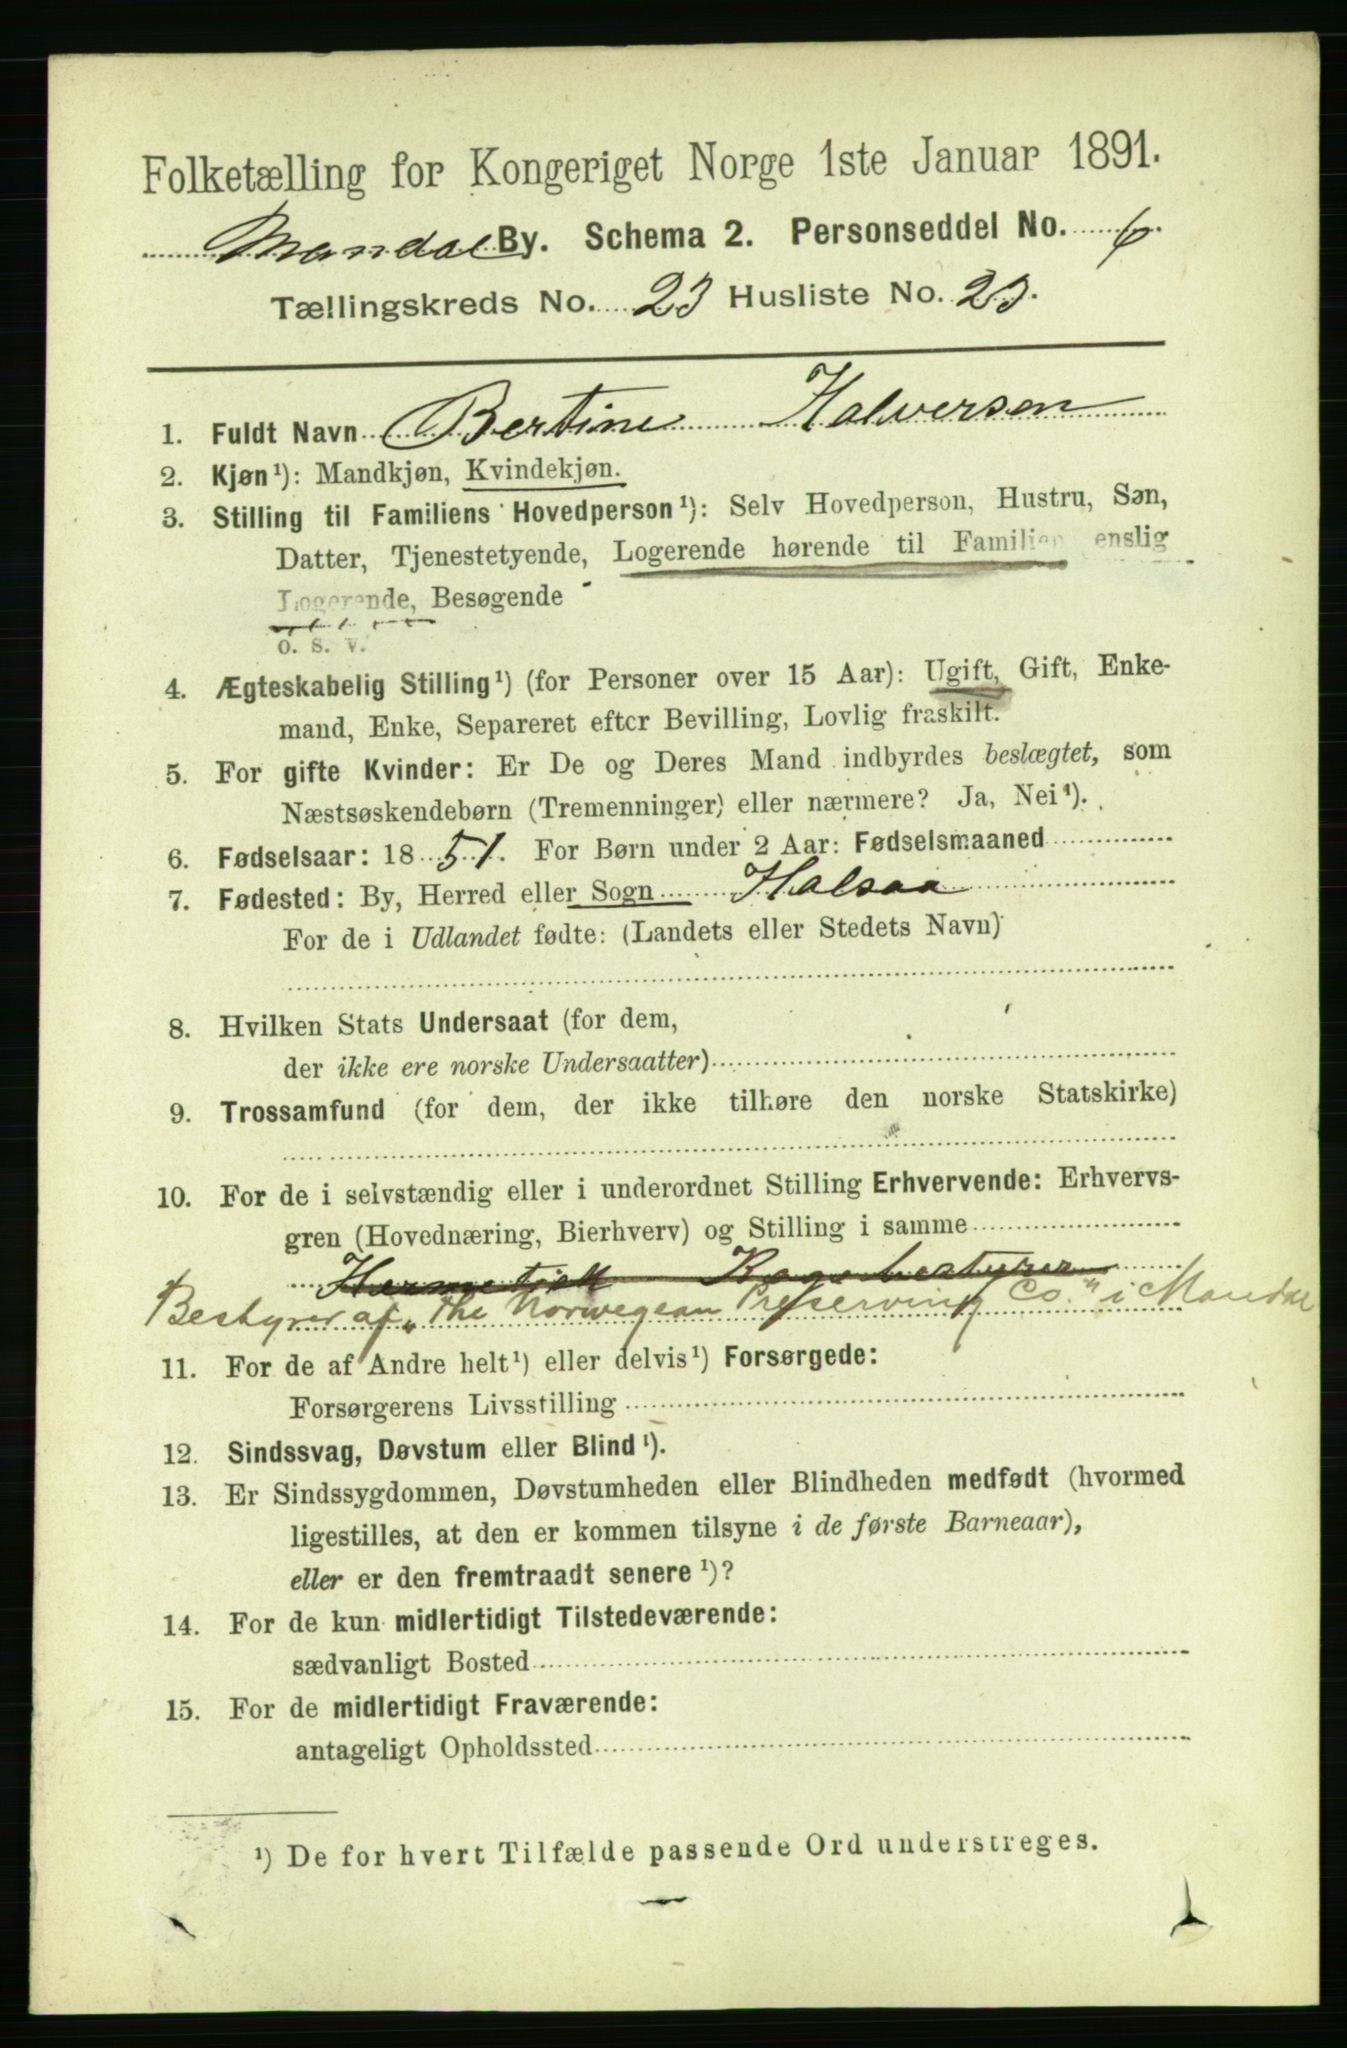 Folketælling for Kongeriget Norge 1ste Januar 1891.
Mandal By. Schema 2. Personseddel No. 6.
Tællingskreds No. 23 Husliste No. 23.
1. Fuldt Navn Bertine Halversen
2. Kjøn¹): Mandkjøn, Kvindekjøn.
3. Stilling til Familiens Hovedperson¹): Selv Hovedperson, Hustru, Søn,
Datter, Tjenestetyende, Logerende hørende til Familien enslig
Logerende, Besøgende
o. s. v.
4. Ægteskabelig Stilling¹) (for Personer over 15 Aar): Ugift, Gift, Enke-
mand, Enke, Separeret efter Bevilling, Lovlig fraskilt.
5. For gifte Kvinder: Er De og Deres Mand indbyrdes beslægtet, som
Næstsøskendebørn (Tremenninger) eller nærmere? Ja, Nei¹).
6. Fødselsaar: 1851. For Børn under 2 Aar: Fødselsmaaned
7. Fødested: By, Herred eller Sogn Halsaa
For de i Udlandet fødte: (Landets eller Stedets Navn)
8. Hvilken Stats Undersaat (for dem,
der ikke ere norske Undersaatter)
9. Trossamfund (for dem, der ikke tilhøre den norske Statskirke)
10. For de i selvstændig eller i underordnet Stilling Erhvervende: Erhvervs-
gren (Hovednæring, Bierhverv) og Stilling i samme
Hermetisk
Bestyrer af "The Norwegean Preserving Co." i Mandal
11. For de af Andre helt¹) eller delvis¹) Forsørgede:
Forsørgerens Livsstilling
12. Sindssvag, Døvstum eller Blind¹).
13. Er Sindssygdommen, Døvstumheden eller Blindheden medfødt (hvormed
ligestilles, at den er kommen tilsyne i de første Barneaar),
eller er den fremtraadt senere¹)?
14. For de kun midlertidigt Tilstedeværende:
sædvanligt Bosted
15. For de midlertidigt Fraværende:
antageligt Opholdssted
¹) De for hvert Tilfælde passende Ord understreges.